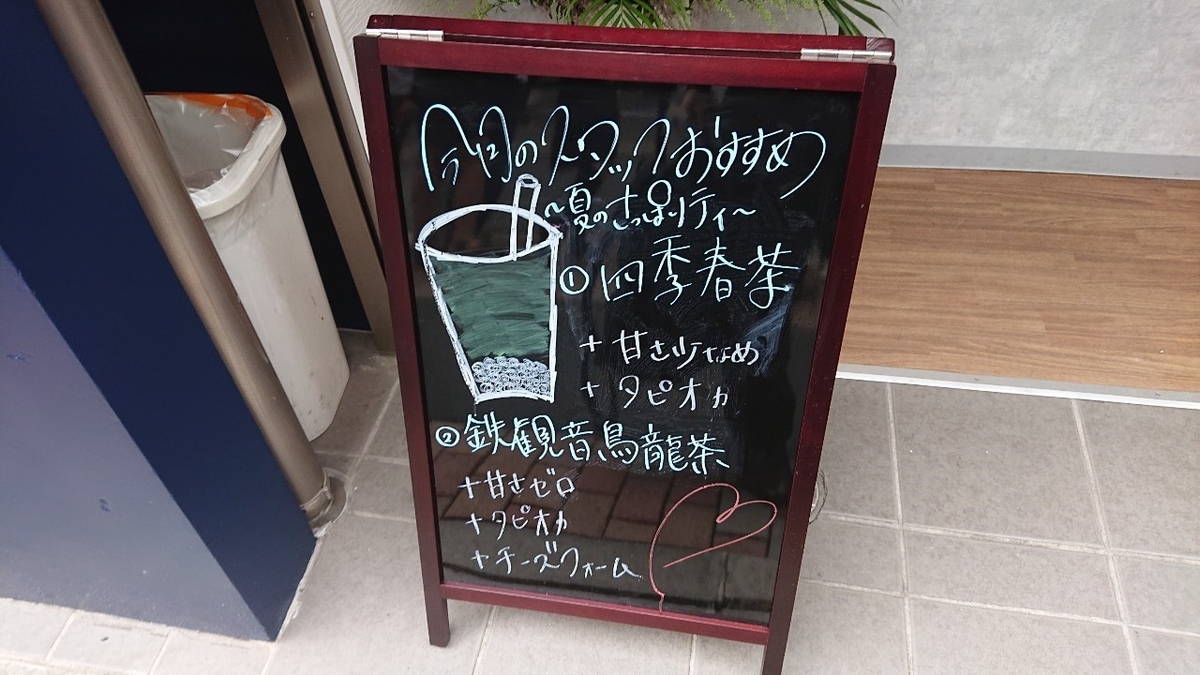 今月のスタッフおすすめ
～夏のさっぱりティ～
①四季春茶
+甘さ少なめ
+タピオカ
②鉄観音烏龍茶
+甘さゼロ
+タピオカ
+チーズフォーム